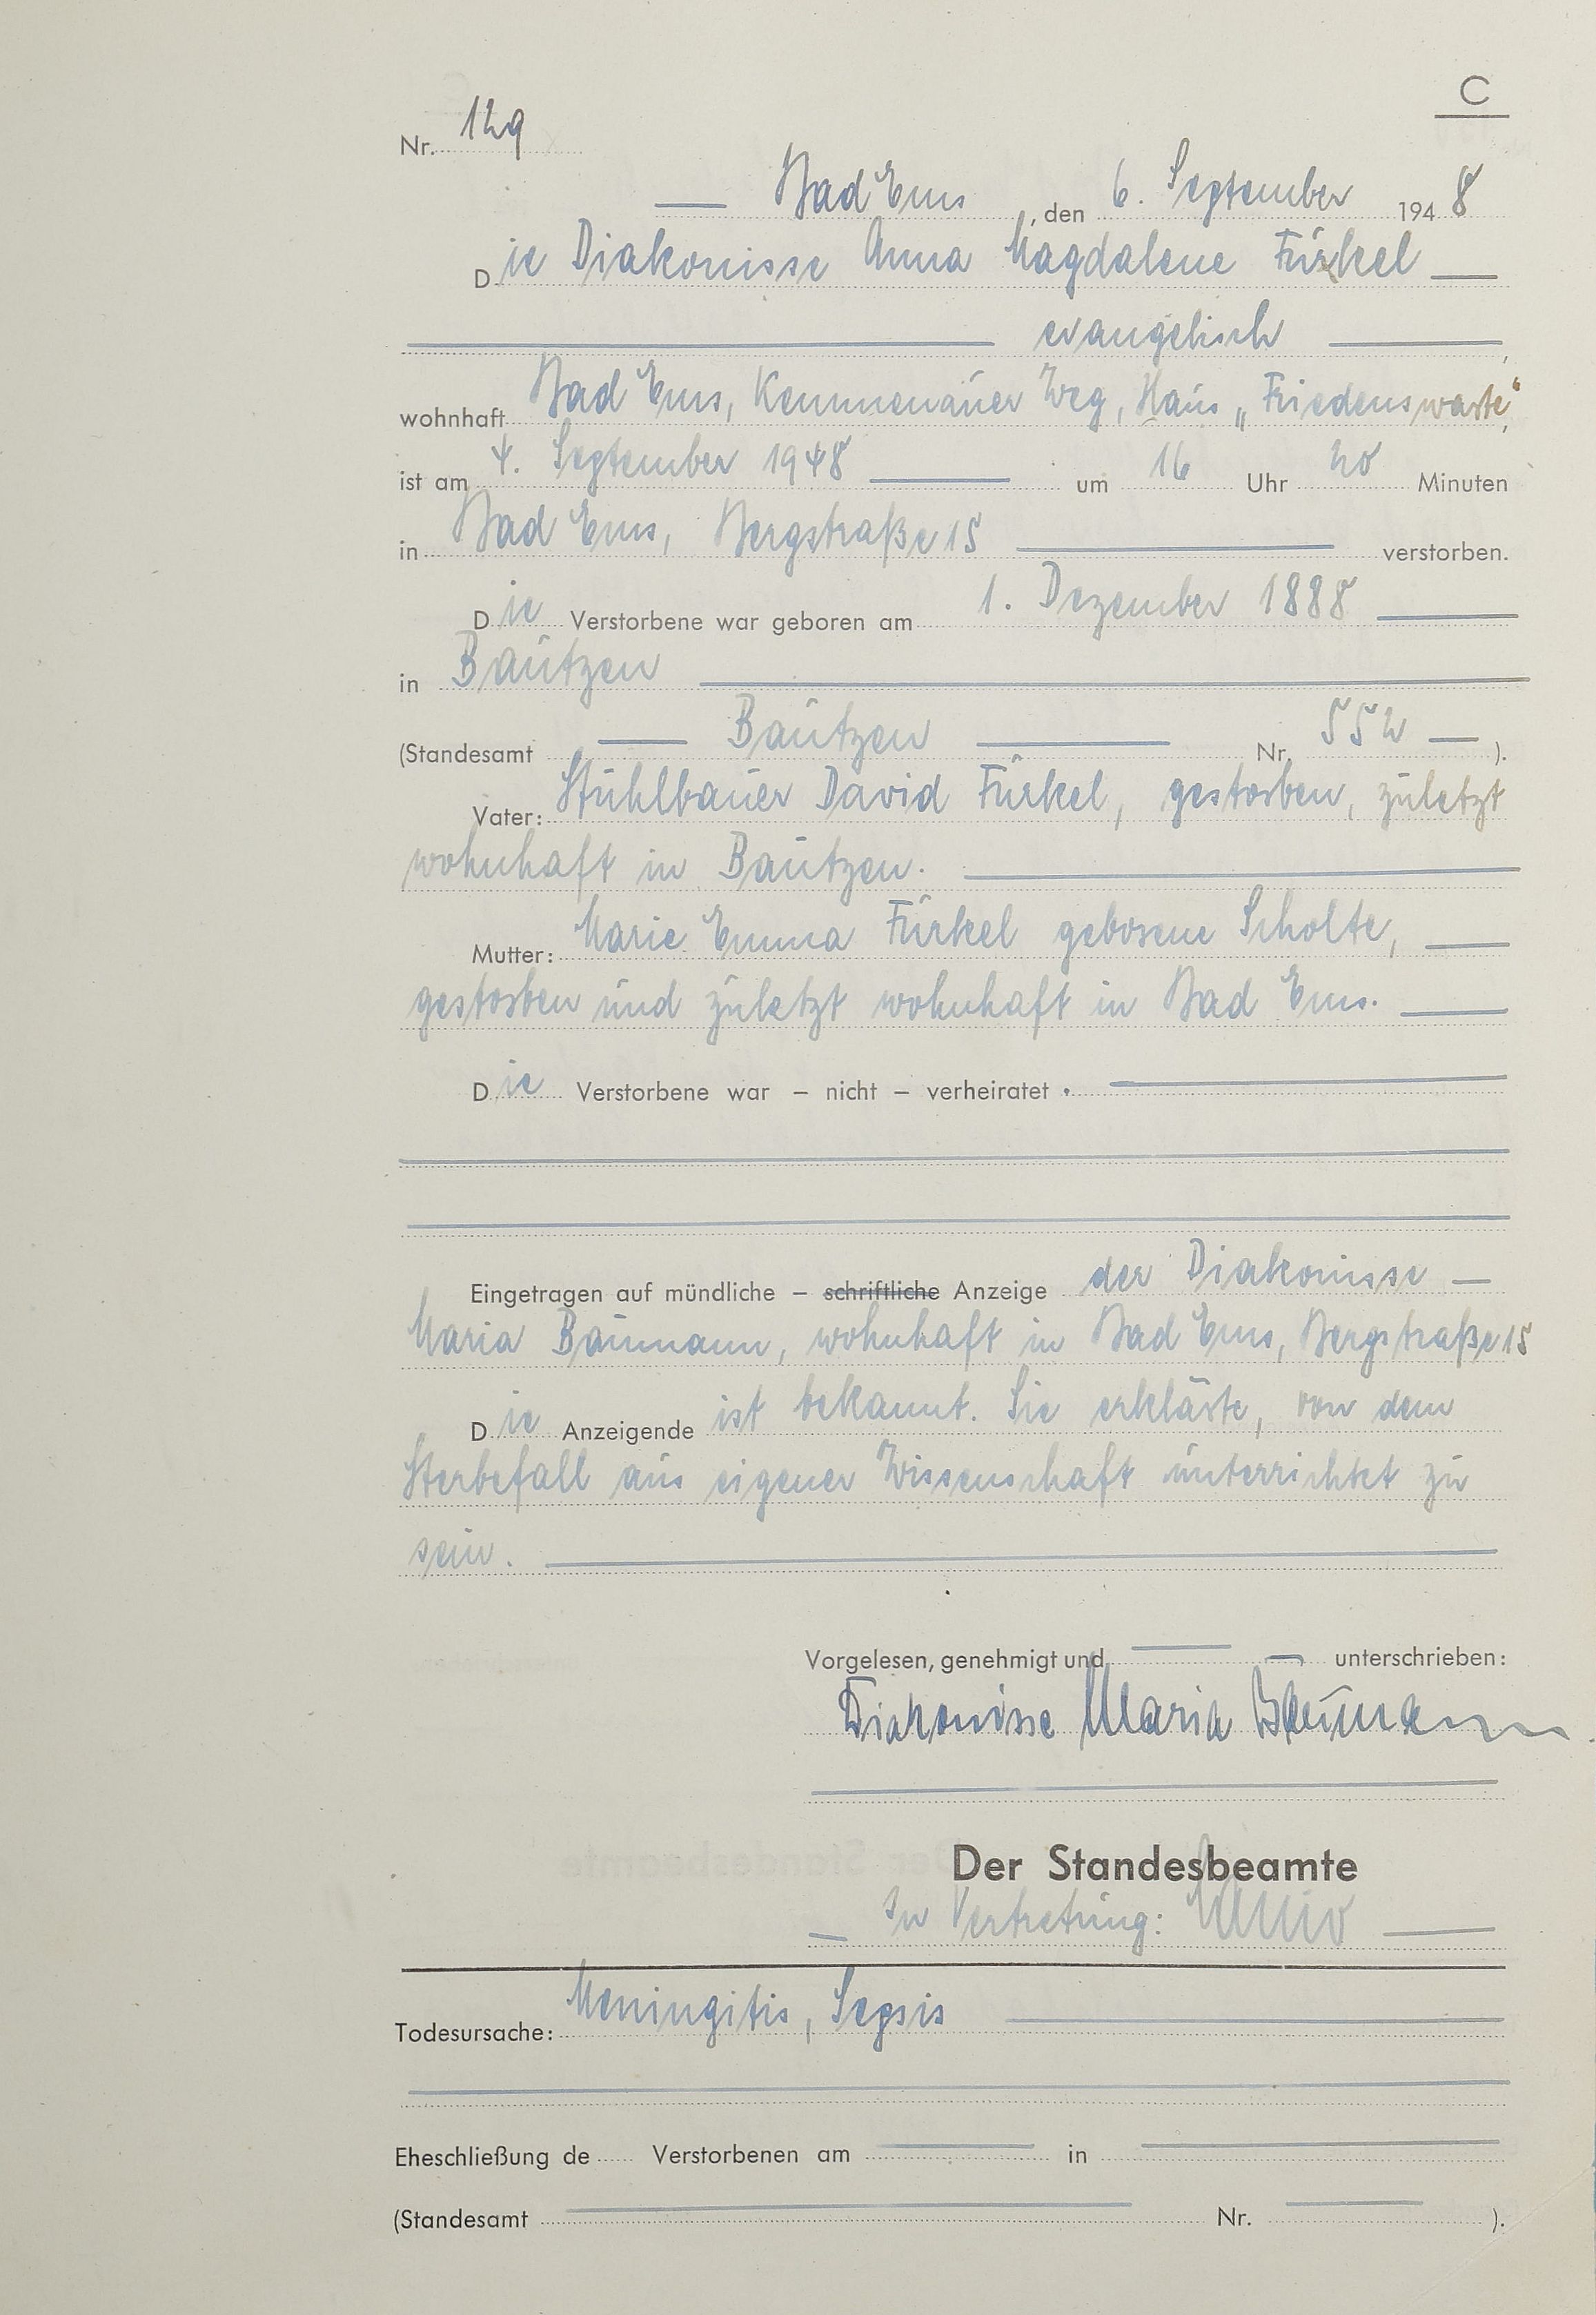 C
Nr. 129
Bad Ems, den 6. September 1948
Die Diakonisse Anna Magdalene Fürkel
evangelisch,
wohnhaft Bad Ems, Kemmenauer Weg, Haus „Friedenswarte“,
ist am 4. September 1948 um 16 Uhr 20 Minuten
in Bad Ems, Bergstraße 15 verstorben.
Die Verstorbene war geboren am 1. Dezember 1888
in Bautzen
(Standesamt Bautzen Nr. 552).
Vater: Stuhlbauer David Fürkel, gestorben, zuletzt
wohnhaft in Bautzen.
Mutter: Marie Emma Fürkel geborene Scholte,
gestorben und zuletzt wohnhaft in Bad Ems.
Die Verstorbene war – nicht – verheiratet.
Eingetragen auf mündliche – schriftliche Anzeige der Diakonisse
Maria Baumann, wohnhaft in Bad Ems, Bergstraße 15
Die Anzeigende ist bekannt. Sie erklärte, von dem
Sterbefall aus eigener Wissenschaft unterrichtet zu
sein.
Vorgelesen, genehmigt und unterschrieben:
Diakonisse Maria Baumann
Der Standesbeamte
In Vertretung:
Todesursache: Meningitis, Sepsis
Eheschließung de Verstorbenen am in
(Standesamt Nr. ).